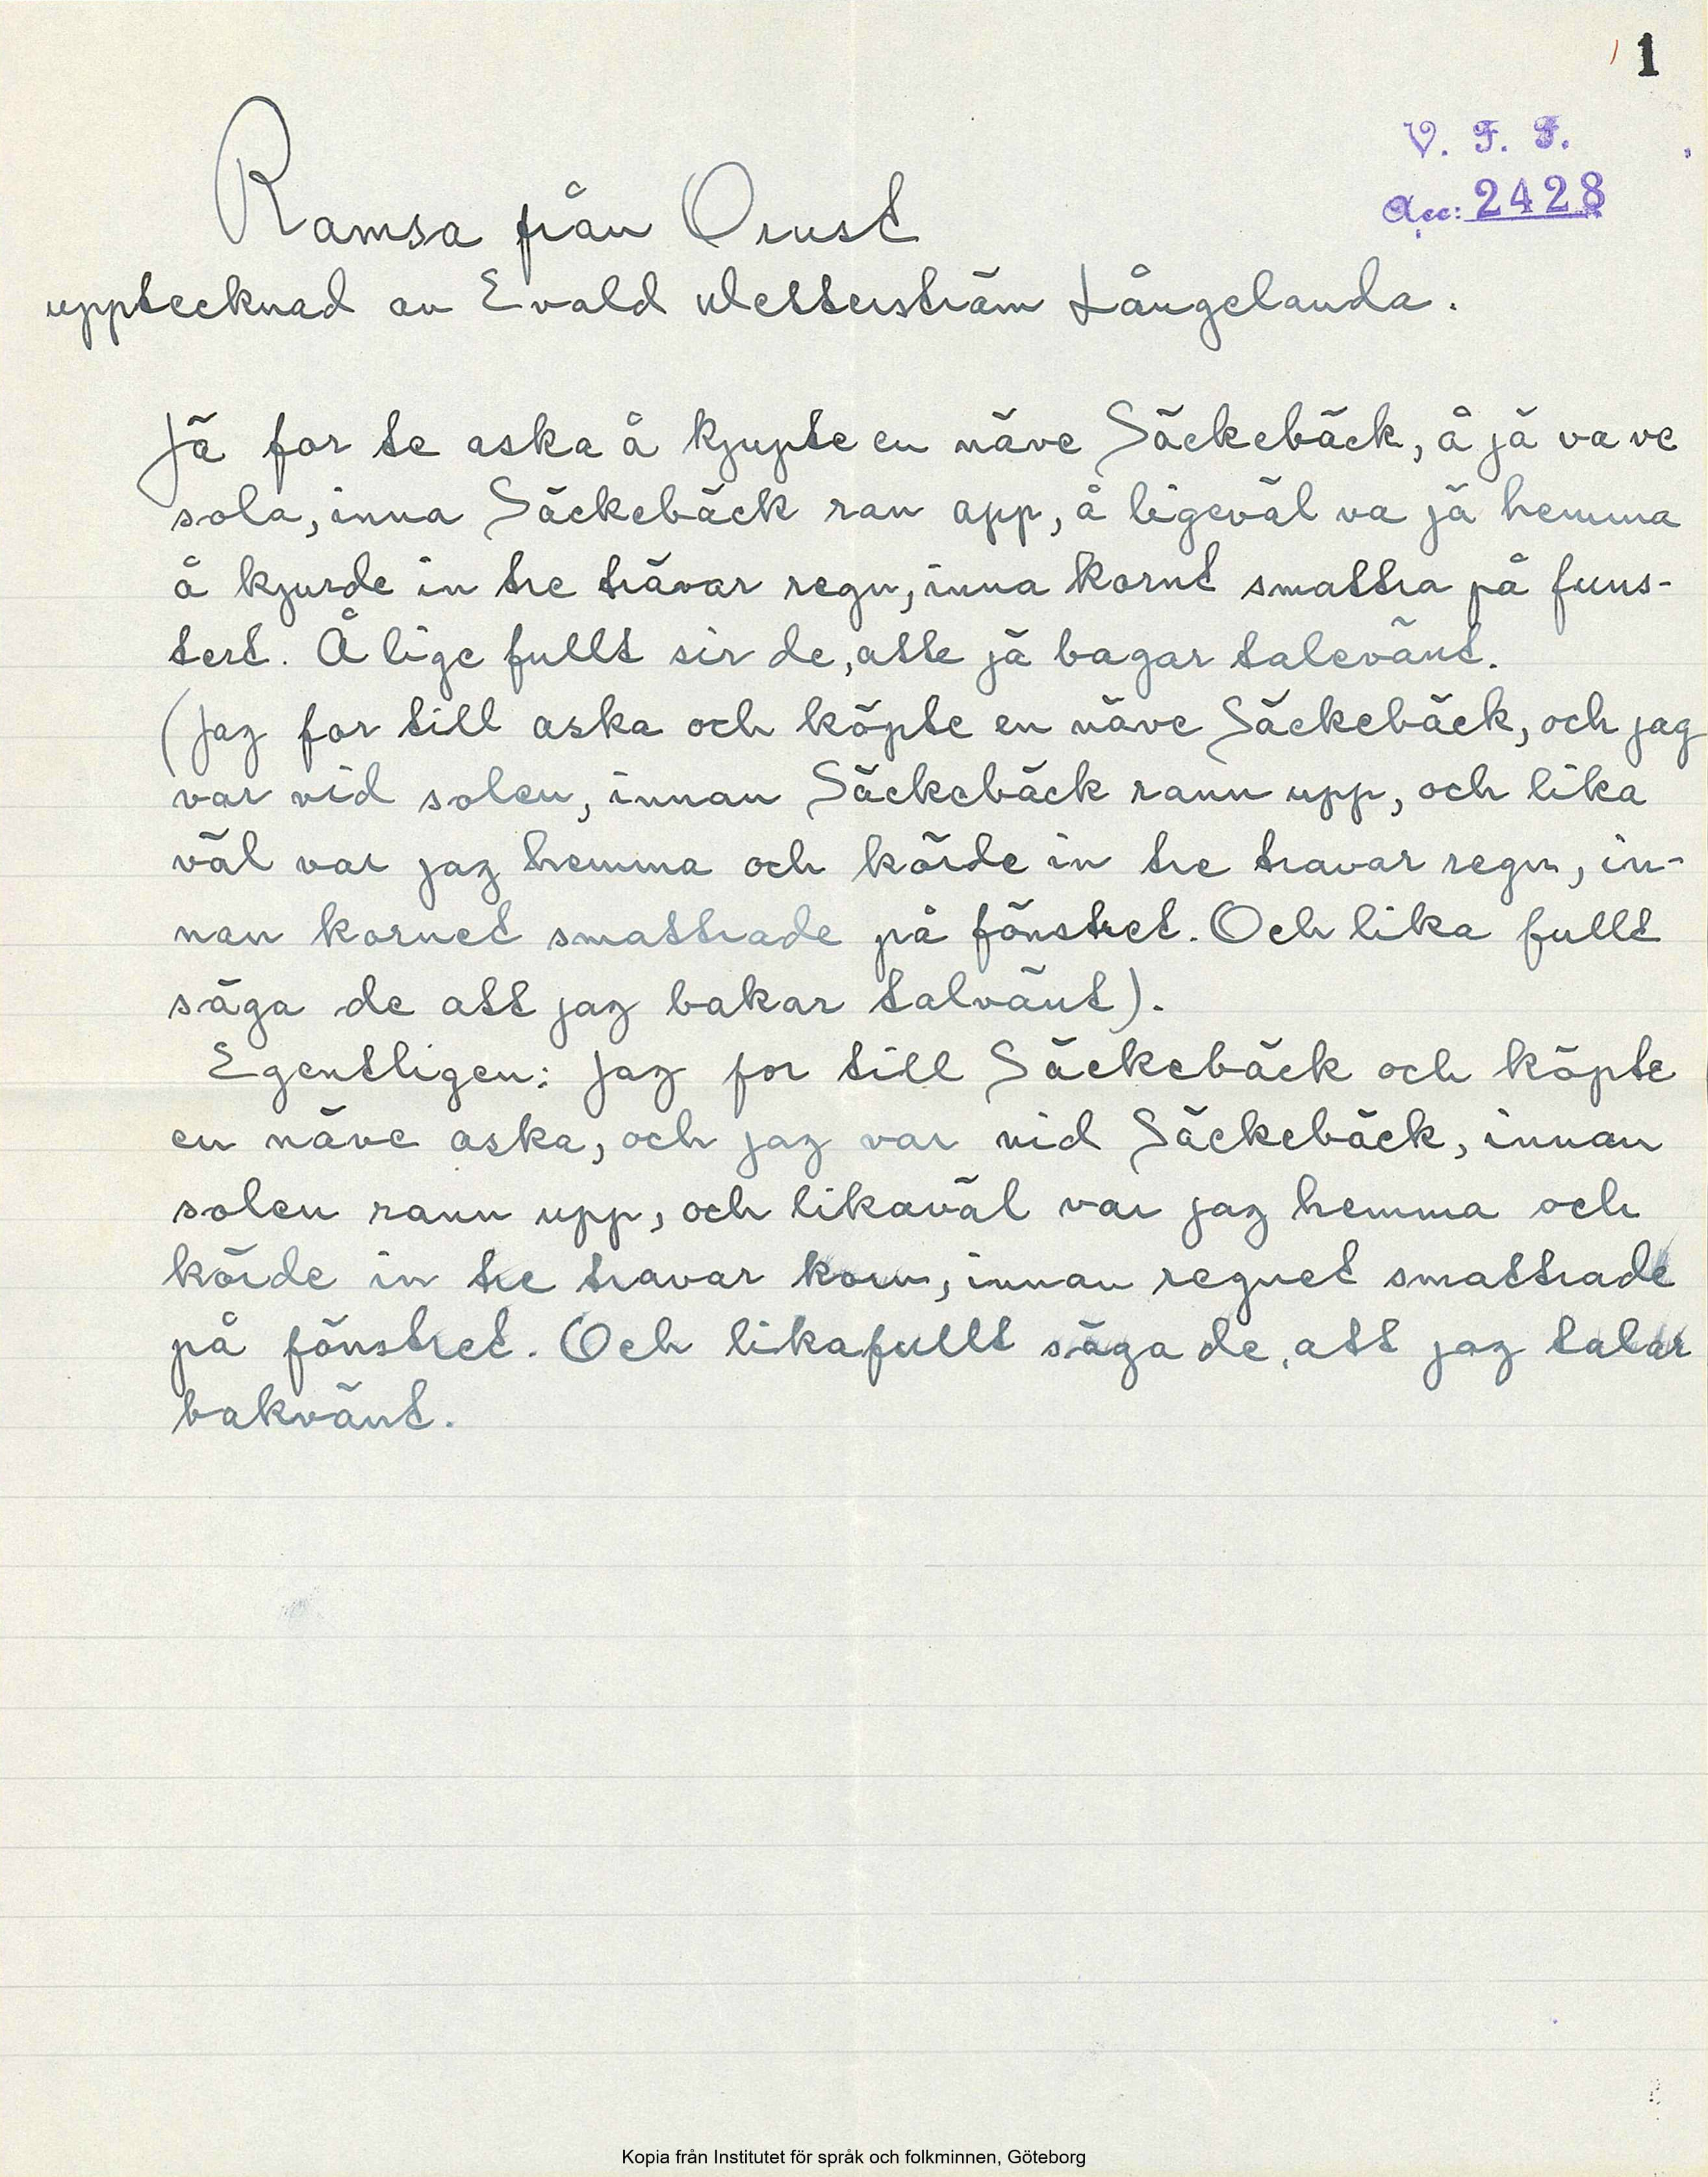 1
V. F. F.
Acc: 2428
Ramsa från Orust
upptecknad av Evald Wetterström Långelanda.
Jä for te aska å kjupte en näve Säckebäck, å jä va ve
sola, inna Säckebäck ran app, å ligeväl va jä hemma
å kjurde in tre trävar regn, inna kornt smattra på funs-
tert. Å lige fullt sir de, atte jä bagar talevänt.
(Jag for till aska och köpte en näve Säckebäck, och jag
var vid solen, innan Säckebäck rann upp, och lika
väl var jag hemma och körde in tre travar regn, in-
nan kornet smattrade på fönstret. Och lika fullt
säga de att jag bakar talvänt).
Egentligen: Jag for till Säckebäck och köpte
en näve aska, och jag var vid Säckebäck, innan
solen rann upp, och likaväl var jag hemma och
körde in tre travar korn, innan regnet smattrade
på fönstret. Och likafullt säga de, att jag talar
bakvänt.
Kopia från Institutet för språk och folkminnen, Göteborg